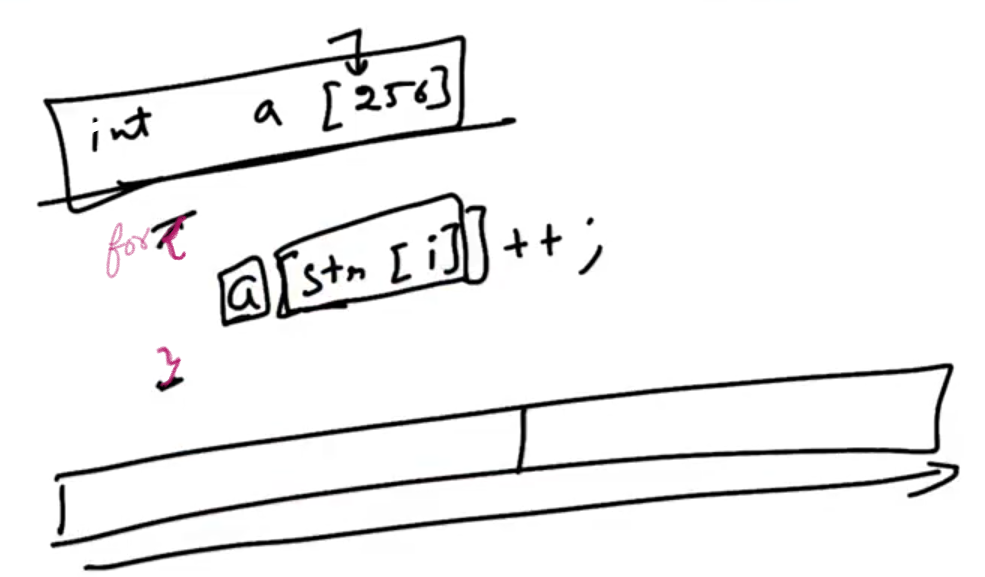 int a [256]
for {
a [str [i]] ++ ;
}